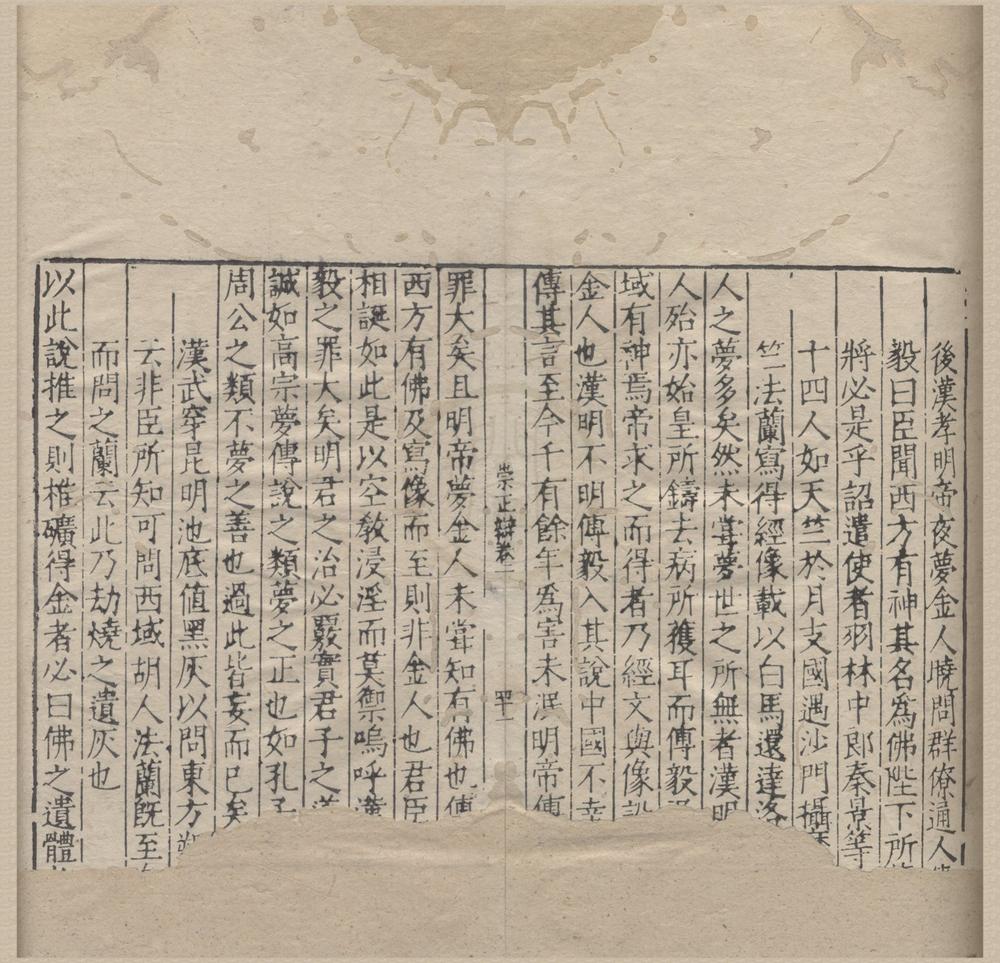 後漢孝明帝夜夢金人曉問群僚通人
毅曰臣聞西方有神其名為佛陛下所
將必是乎詔遣使者羽林中郎秦景等
十四人如天竺於月支國遇沙門攝
竺法蘭寫得經像載以白馬還達洛
人之夢多矣然未甞夢世之所無者漢明
人殆亦始皇所鑄去病所獲耳而傅毅
域有神焉帝求之而得者乃經文與像
金人也漢明不明傅毅入其說中國不幸
傳其言至今千有餘年為害未泯明帝傅
崇正辯卷一
罪大矣且明帝夢金人未甞知有佛也傅
西方有佛及寫像而至則非金人也君臣
相誕如此是以空教浸淫而莫禦嗚呼漢
毅之罪大矣明君之治必覈實君子之道
誠如高宗夢傅說之類夢之正也如孔子
周公之類不夢之善也過此皆妄而已矣
漢武穿昆明池底值黑灰以問東方朔
云非臣所知可問西域胡人法蘭旣至
而問之蘭云此乃劫燒之遺灰也
以此說推之則椎礦得金者必曰佛之遺體